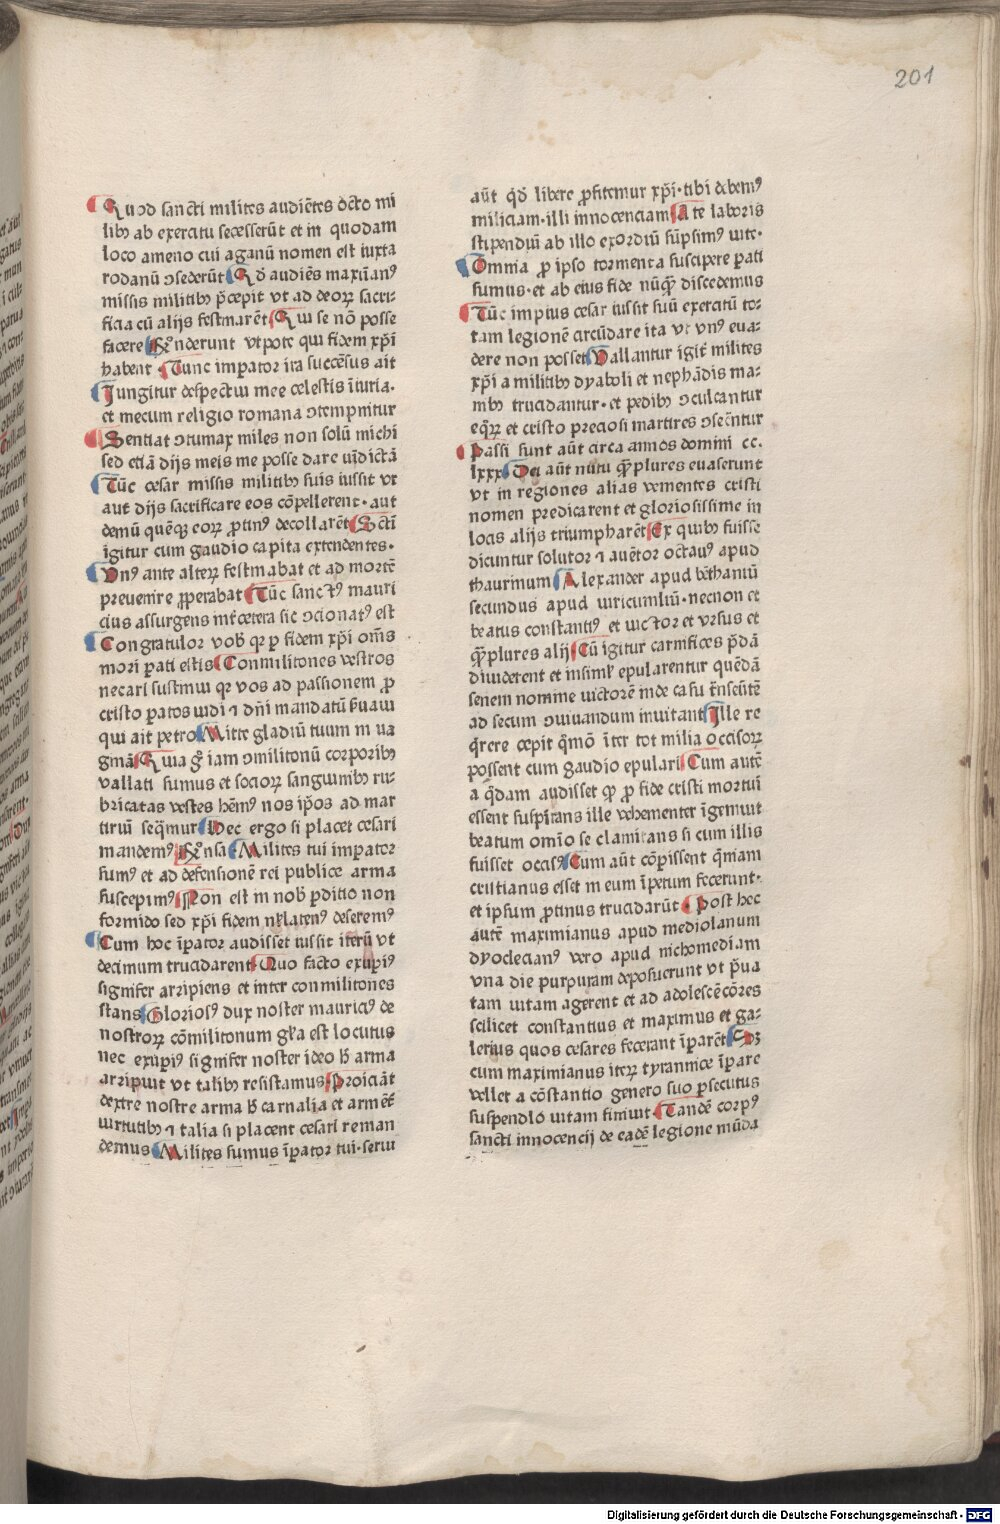 201
Quod sancti milites audiētes dcto mi
libꝫ ab exercitu secesserūt et in quodam
loco ameno cui aganū nomen est iuxta
rodanū ꝯsederūt Qd audiēs maxiīanꝰ
missis militibꝫ p̄cepit vt ad deorꝝ sacri⸗
ficia cū alijs festinarēt Qui se nō posse
facere Rn̄derunt vtpote qui fidem xp̄i
habent· Tunc imꝑator ira succēsus ait
Jungitur despectui mee celestis īiuria·
et mecum religio romana ꝯtempnitur
Sentiat ꝯtumax miles non solū michi
sed etiā dijs meis me posse dare vīdictā
Tūc cesar missis militibꝫ suis iussit vt
aut dijs sacrificare eos cōpellerent· aut
demū quēqꝫ eorꝝ ꝓtinꝰ decollarēt Sctī
īgitur cum gaudio capita extendentes·
Vnꝰ ante alterꝝ festinabat et ad mortē
prevenire ꝓperabat Tūc sanctꝰ mauri
cius assurgens int̄ cetera sic ꝯcionatꝰ est
Congratulor vob̄ qꝛ ꝑ fidem xp̄i om̄s
mori ꝑati estis Conmilitones vestros
necari sustinui qꝛ vos ad passionem ꝓ
cristo ꝑatos vidi ⁊ dn̄i mandatū ẜuaui
qui ait petro Mitte gladiū tuum in va
gīnā Quia gͦ iam ꝯmilitonū corporibꝫ
vallati sumus et sociorꝝ sanguinibꝫ ru⸗
bricatas vestes hēmꝰ nos ip̄os ad mar
tiriū seq̄mur Hec ergo si placet cesari
mandemꝰ Rn̄sa Milites tui imꝑator
sumꝰ et ad defensionē rei publice arma
suscepimꝰ Non est in nob̄ ꝓditio non
formido sed xp̄i fidem nl̄latenꝰ deseremꝰ
Cum hoc īꝑator audisset iussit iterū vt
decimum trucidarent Quo facto exupiꝰ
signifer arripiens et inter conmilitones
stans Gloriosꝰ dux noster mauricꝰ de
nostrorꝝ cōmilitonum gl̄a est locutus
nec exupiꝰ signifer noster ideo h̄ arma
arripuit vt talibꝫ resistamus Proiciāt
dextre nostre arma h̄ carnalia et armēt̄
virtutibꝫ ⁊ talia si placent cesari reman
demus Milites sumus īꝑator tui· serui
aūt qd̄ libere ꝓfitemur xp̄i· tibi debemꝰ
miliciam· illi innocenciam A te laboris
stipendiū ab illo exordiū sūpsimꝰ vite·
Omnia ꝓ ipso tormenta suscipere ꝑati
sumus· et ab eius fide nūqꝫ̄ discedemus
Tūc impius cesar iussit suū exercitū to⸗
tam legionē circūdare ita vt vnꝰ eua⸗
dere non posset Vallantur igit̄ milites
xp̄i a militibꝫ dyaboli et nephādis ma⸗
nibꝫ trucidantur· et pedibꝫ ꝯculcantur
eqꝛꝝ et cristo preciosi martires ꝯsecntur
Passi sunt aūt circa annos domini cc.
lxxx Dei aūt nutu qꝫ̄plures euaserunt
vt in regiones alias venientes cristi
nomen predicarent et gloriosissime in
locis alijs triumpharēt Ex quibꝫ fuisse
dicuntur solutor ⁊ auētor octauꝰ apud
thaurinum Alexander apud bēthaniū
secundus apud viricumliū· necnon et
beatus constantiꝰ et victor et vrsus et
qꝫ̄plures alij Cū īgitur carnifices p̄dā
diuiderent et insimĺ epularentur quēdā
senem nomine victorē inde casu trn̄seūtē
ad secum ꝯuiuandum inuitant Jlle re
q̄rere cepit q̄mō īter tot milia occisorꝝ
possent cum gaudio epulari Cum autē
a q̄dam audisset qꝫ ꝓ fide cristi mortui
essent suspirans ille vehementer īgemuit
beatum omīo se clamitans si cum illis
fuisset occisꝰ Cum aūt cōpissent q̄niam
cristianus esset in eum īpetum fecerunt·
et ipsum ꝓtinus trucidarūt· Post hec
autē maximianus apud mediolanum
dyoclecianꝰ vero apud nichomediam
vna die purpuram deposuerunt vt p̄ua
tam vitam agerent et ad adolescēcōres
scilicet constantius et maximus et ga⸗
lerius quos cesares fecerant īꝑarēt Sꝫ
cum maximianus iterꝝ tyrannice īꝑare
vellet a cōstantio genero suo ꝑsecutus
suspendio vitam finiuit· Tandē corpꝰ
sancti innocencij de eadē legione mūda
Digitalisierung gefördert durch die Deutsche Forschungsgemeinschaft - DFG